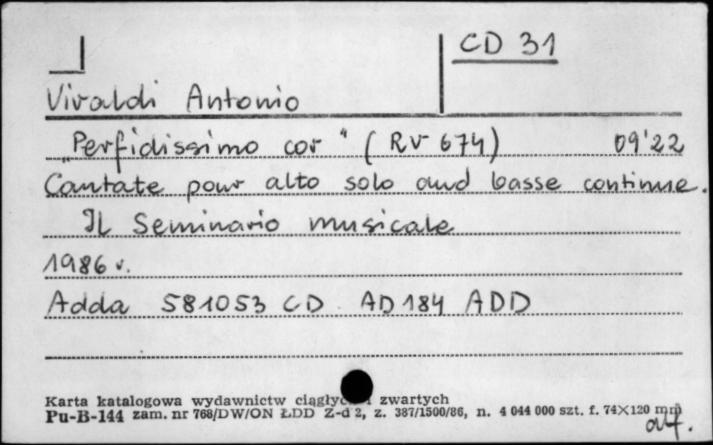 CD 31
Vivaldi Antonio
„Perfidissimo cor" (RV 674) 09'22
Cantate pour alto solo and basse continue.
Il Seminario musicale
1986 r.
Adda 581053 CD AD184 ADD
Karta katalogowa wydawnictw ciągłyc i zwartych
Pu-B-144 zam. nr 768/DW/ON ŁDD Z-d 2, z. 387/1500/86, n. 4 044 000 szt. f. 74×120 mm